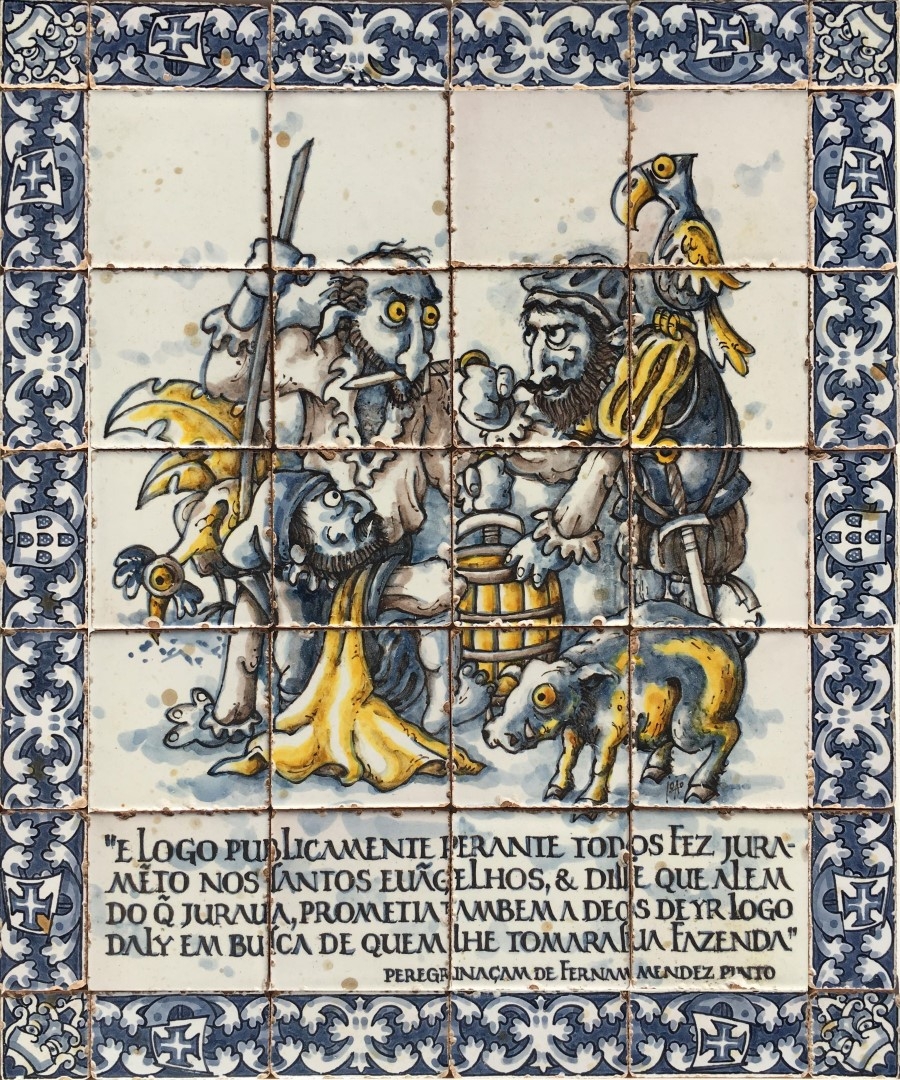 IOAO
"E LOGO PUBLICAMENTE PERANTE TODOS FEZ JURA-
MẼTO NOS ſANTOS EUÃGELHOS, & DIſſE QUE ALEM
DO Q̃ JURAUA, PROMETIA TAMBEM A DEOS DE YR LOGO
DALY EM BUſCA DE QUEM LHE TOMARA ſUA FAZENDA"
PEREGRINAÇAM DE FERNAM MENDEZ PINTO